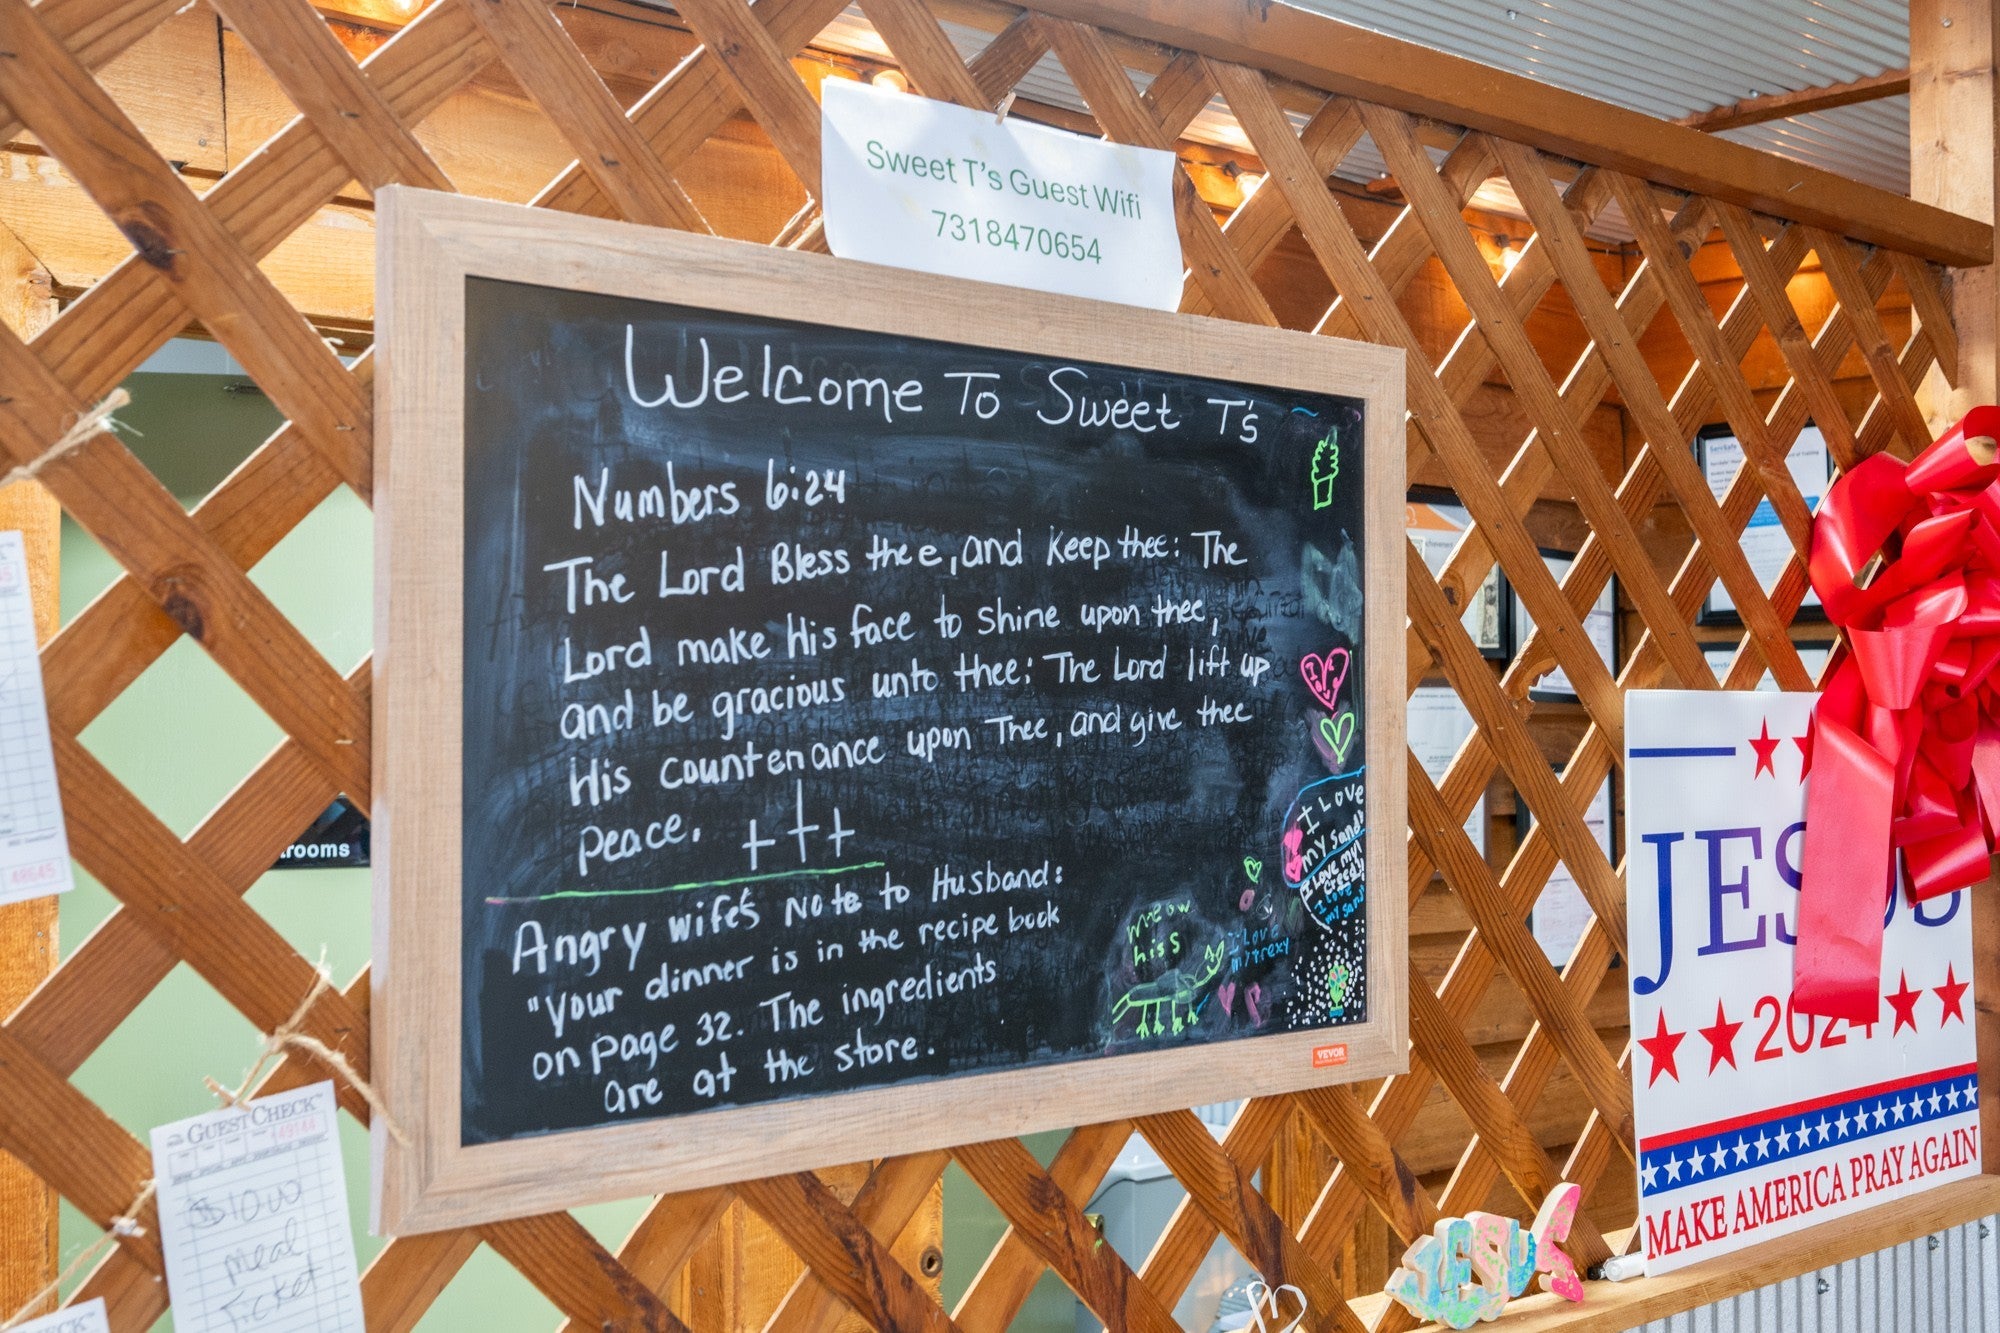 Sweet T's Guest Wifi
7318470654
Welcome To Sweet T's
Numbers 6:24
The Lord Bless thee, and Keep thee: The
Lord make His face to shine upon thee,
and be gracious unto thee: The Lord lift up
His countenance upon Thee, and give thee
peace.
Angry wife's Note to Husband:
"Your dinner is in the recipe book
on page 32. The ingredients
are at the store.
I LOVE
my
I LOVE my
I LOVE
meow
hiss
I LOVE
my trexy
VEVOR
rooms
49645
GUEST CHECK
149144
$10.00
meal
Ticket
CHECK
ServSafe
JESUS
2024
MAKE AMERICA PRAY AGAIN
JESUS